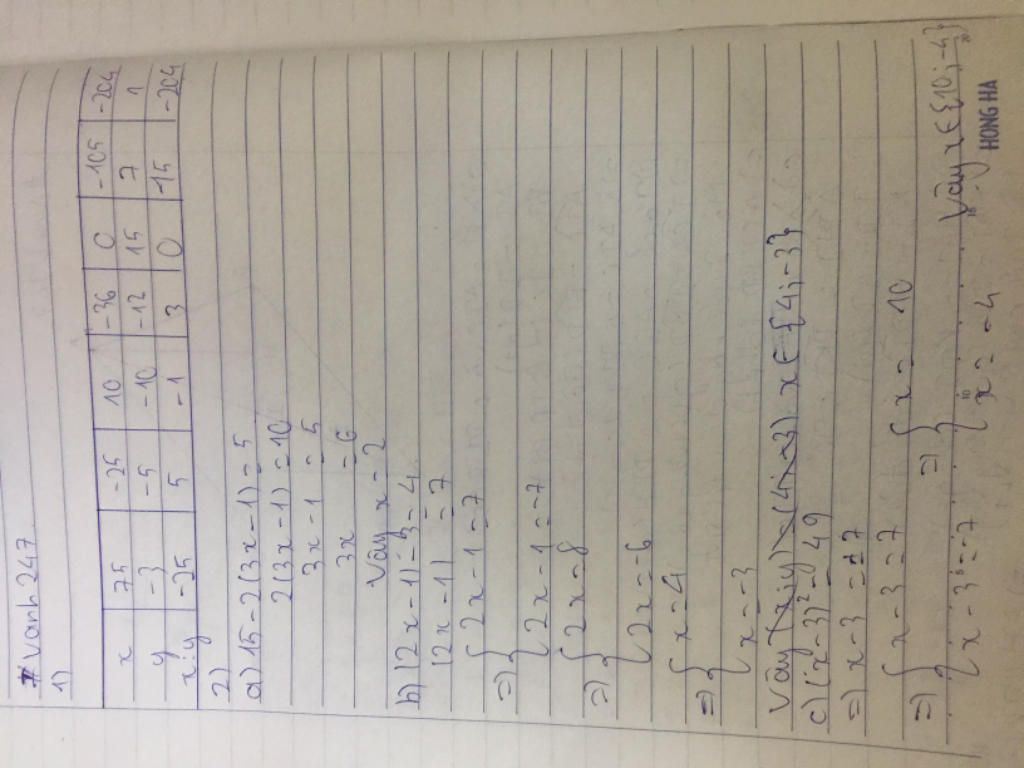 # Vanh247
1)
x 75 -25 10 -36 0 -105 -204
y -3 -5 -10 -12 15 7 1
x:y -25 5 -1 3 0 -15 -204
2)
a) 15-2(3x-1)=5
2(3x-1)=10
3x-1=5
3x=6
Vậy x=2
b) |2x-1|-3=4
|2x-1|=7
=> { 2x-1=7
{ 2x-1=-7
=> { 2x=8
{ 2x=-6
=> { x=4
{ x=-3
Vậy x∈{4;-3}
c) (x-3)²=49
=> x-3=±7
=> { x-3=7 => { x=10
{ x-3=-7 { x=-4 Vậy x∈{10;-4}
HONG HA